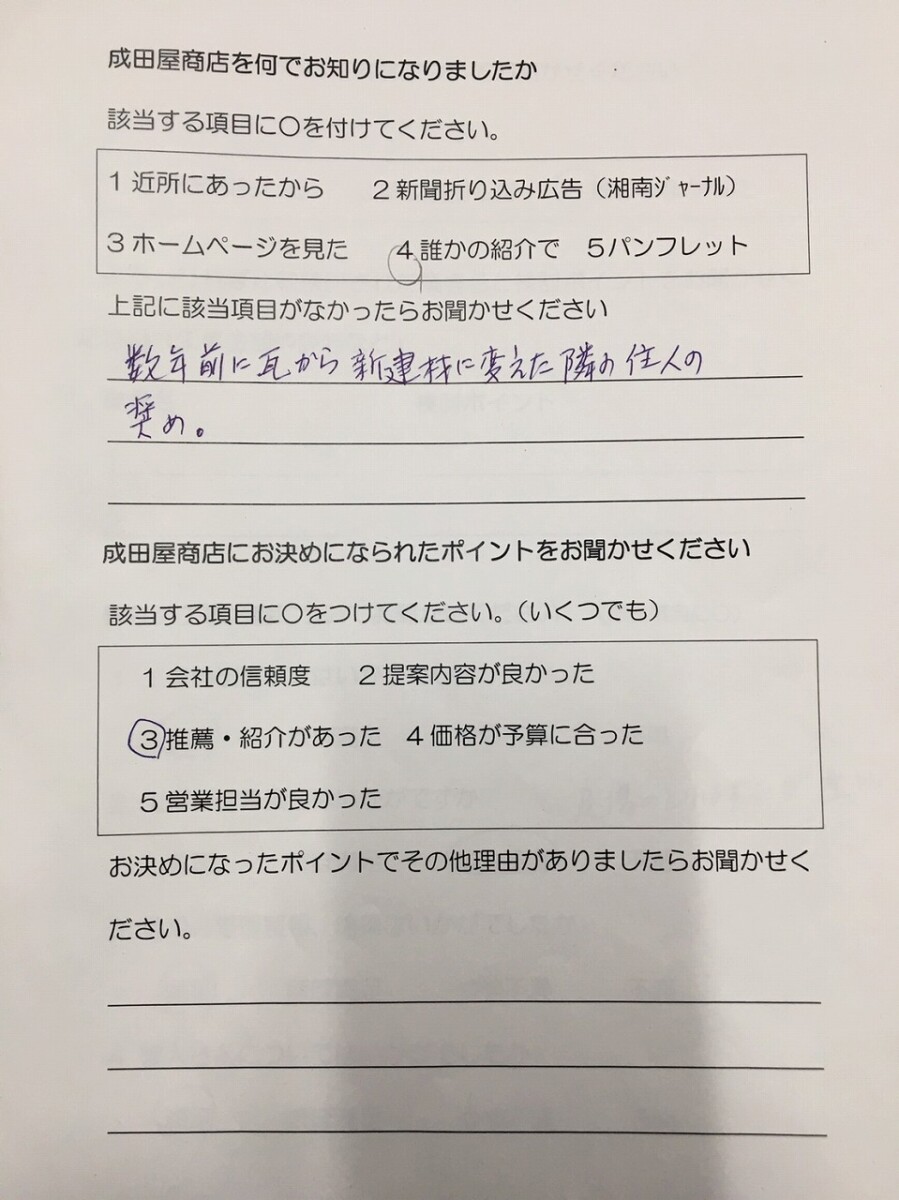 成田屋商店を何でお知りになりましたか
該当する項目に〇を付けてください。
1 近所にあったから　2 新聞折り込み広告（湘南ｼﾞｬｰﾅﾙ）
3 ホームページを見た　4 誰かの紹介で　5 パンフレット
上記に該当項目がなかったらお聞かせください
数年前に瓦から新建材に変えた隣の住人の
奨め。
成田屋商店にお決めになられたポイントをお聞かせください
該当する項目に〇をつけてください。（いくつでも）
1 会社の信頼度　2 提案内容が良かった
3 推薦・紹介があった　4 価格が予算に合った
5 営業担当が良かった
お決めになったポイントでその他理由がありましたらお聞かせく
ださい。